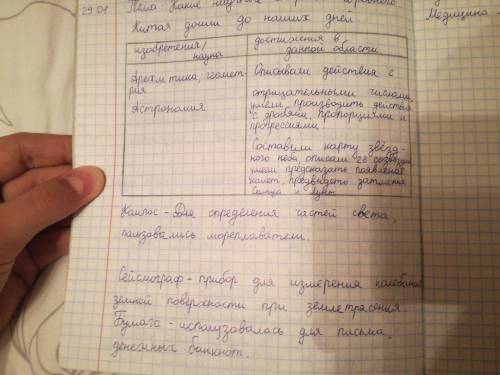 29.01
Тема: Какие научные
Китая дошли до наших дней
Медицина -
изобретения/
наука
достижения в
данной области.
Арехм тика, геомет-
рия
Описывали действия с
отрицательными числами,
умели, производить действия
с дробями, пропорциями и
прогрессиями.
Астрономия.
Составили карту звёзд-
ного неба, описали 28 созвездий
умели предсказать появление
комет, предвидеть затмения
Солнца и Луны
Компос - Для определения частей света,
пользовались мореплаватели.
Сейсмограф - прибор для измерения колебаний
земной поверхности при землетрясения.
Бумага - использовалась для письма,
денежных банкнот.